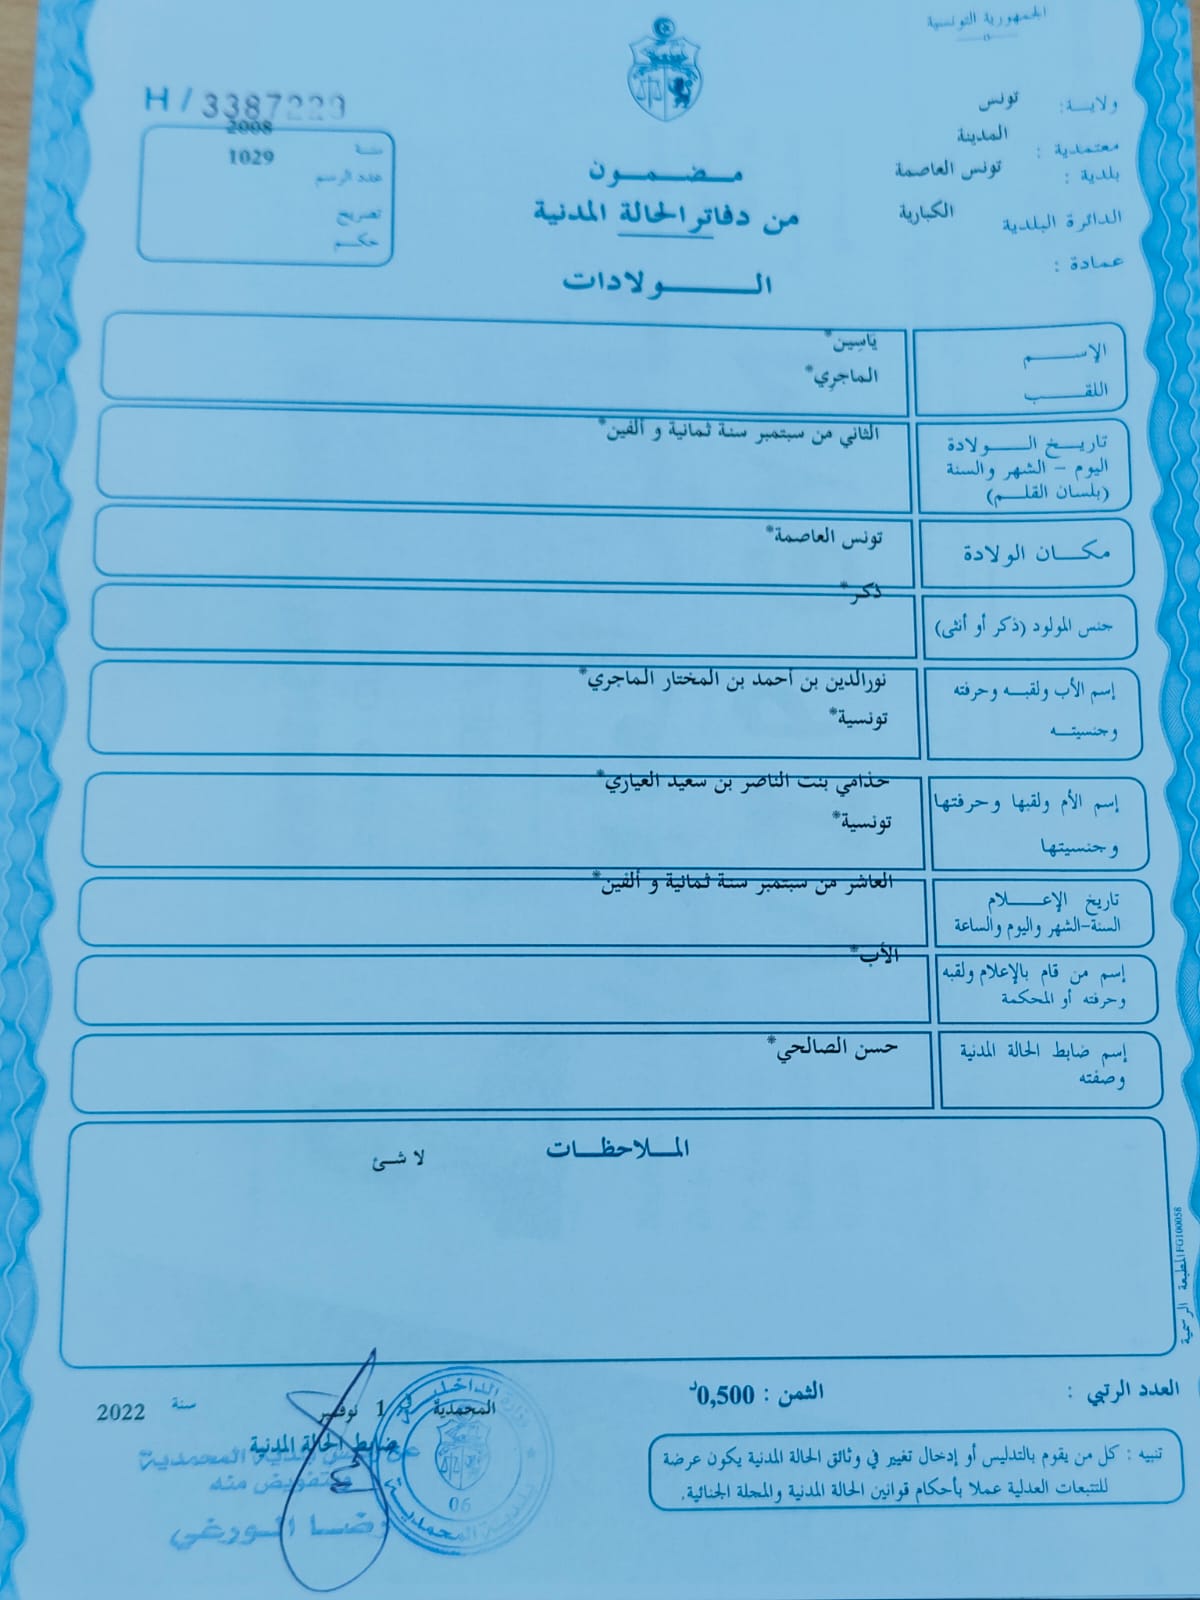 الجمهورية التونسية
ولايـة: تونس
معتمدية : المدينة
بلدية : تونس العاصمة
الدائرة البلدية الكبارية
عمادة :
H / 3387229
سنة 2008
عدد الرسم 1029
تصريح
حكم
مضمون
من دفاتر الحالة المدنية
الولادات
الإسم يَاسِين*
اللقب الماجرِي*
تاريخ الولادة الثاني من سبتمبر سنة ثمانية و ألفين*
اليوم - الشهر والسنة
(بلسان القلم)
مكان الولادة تونس العاصمة*
جنس المولود (ذكر أو أنثى) ذكر*
إسم الأب ولقبه وحرفته نورالدين بن أحمد بن المختار الماجري*
وجنسيته تونسية*
إسم الأم ولقبها وحرفتها حذامي بنت الناصر بن سعيد العياري*
وجنسيتها تونسية*
تاريخ الإعلام العاشر من سبتمبر سنة ثمانية و ألفين*
السنة-الشهر واليوم والساعة
إسم من قام بالإعلام ولقبه الأب*
وحرفته أو المحكمة
إسم ضابط الحالة المدنية حسن الصالحي*
وصفته
الملاحظات
لا شئ
المطبعة الرسمية FG100058
العدد الرتبي :
الثمن : 0,500د
المحمدية في 1 نوفمبر سنة 2022
ضابط الحالة المدنية
عن رئيس بلدية المحمدية
وبتفويض منه
رضا الورغي
وزارة الداخلية
06
بلدية المحمدية
تنبيه : كل من يقوم بالتدليس أو إدخال تغيير في وثائق الحالة المدنية يكون عرضة
للتتبعات العدلية عملا بأحكام قوانين الحالة المدنية والمجلة الجنائية.